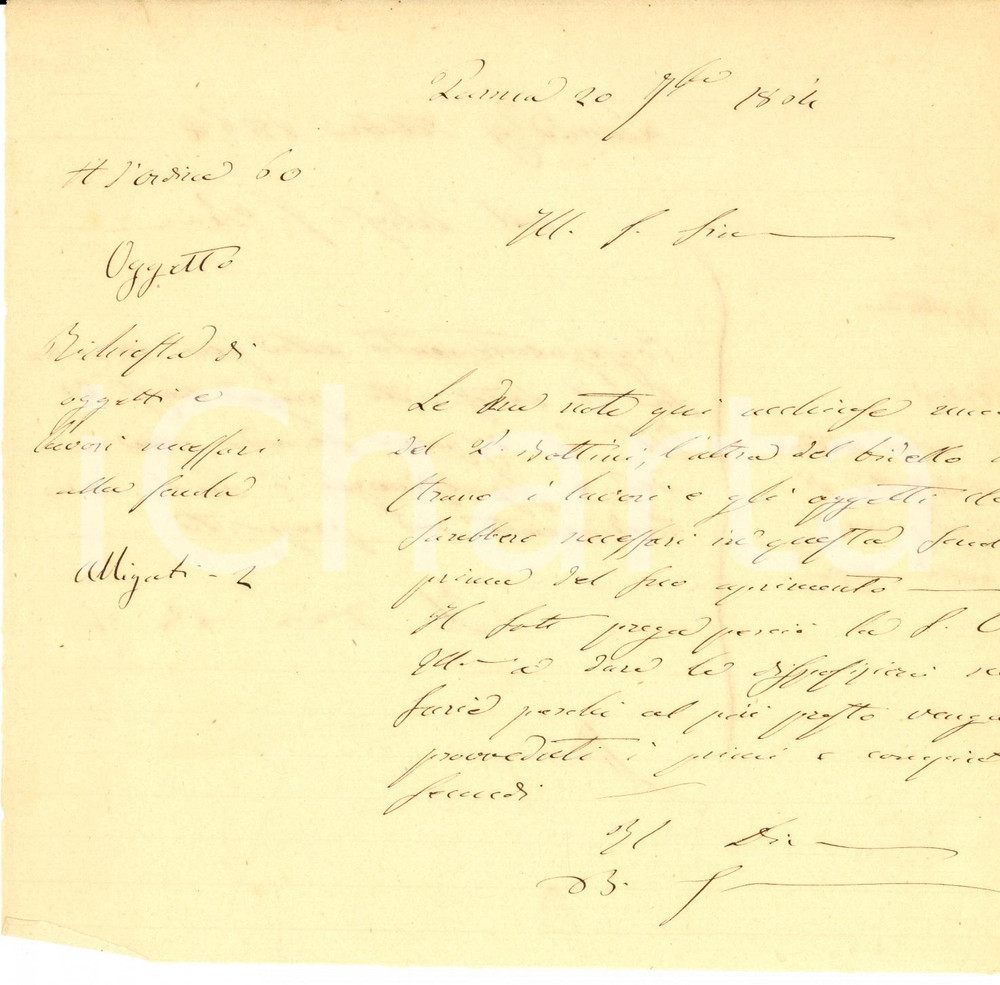 Parma 20 7bre 18
N d'ordine 60
Ill. S. Sin
Oggetto
Richiesta di
oggetti e
lavori necessari
alla scuola
Allegati - 2
Le due note qui acchiuse una
del P. Bottini, l'altra del bidello
strano i lavori e gli oggetti che
sarebbero necessari in questa scuol
prima del suo aprimento
Il sott. prega perciò la S. V
Ill. a dare le disposizioni ne
sarie perchè al più presto venga
provveduti i primi e compiut
secondi
Il Dir
B. G
iCharta